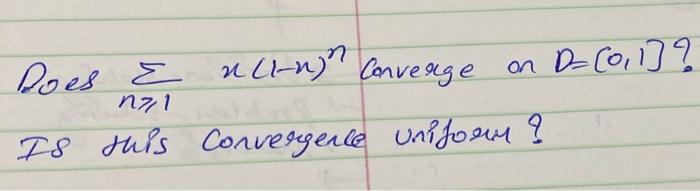 Does Σ x(1-x)ⁿ Converge on D=[0,1]?
n⩾1
Is this Convergence uniform?